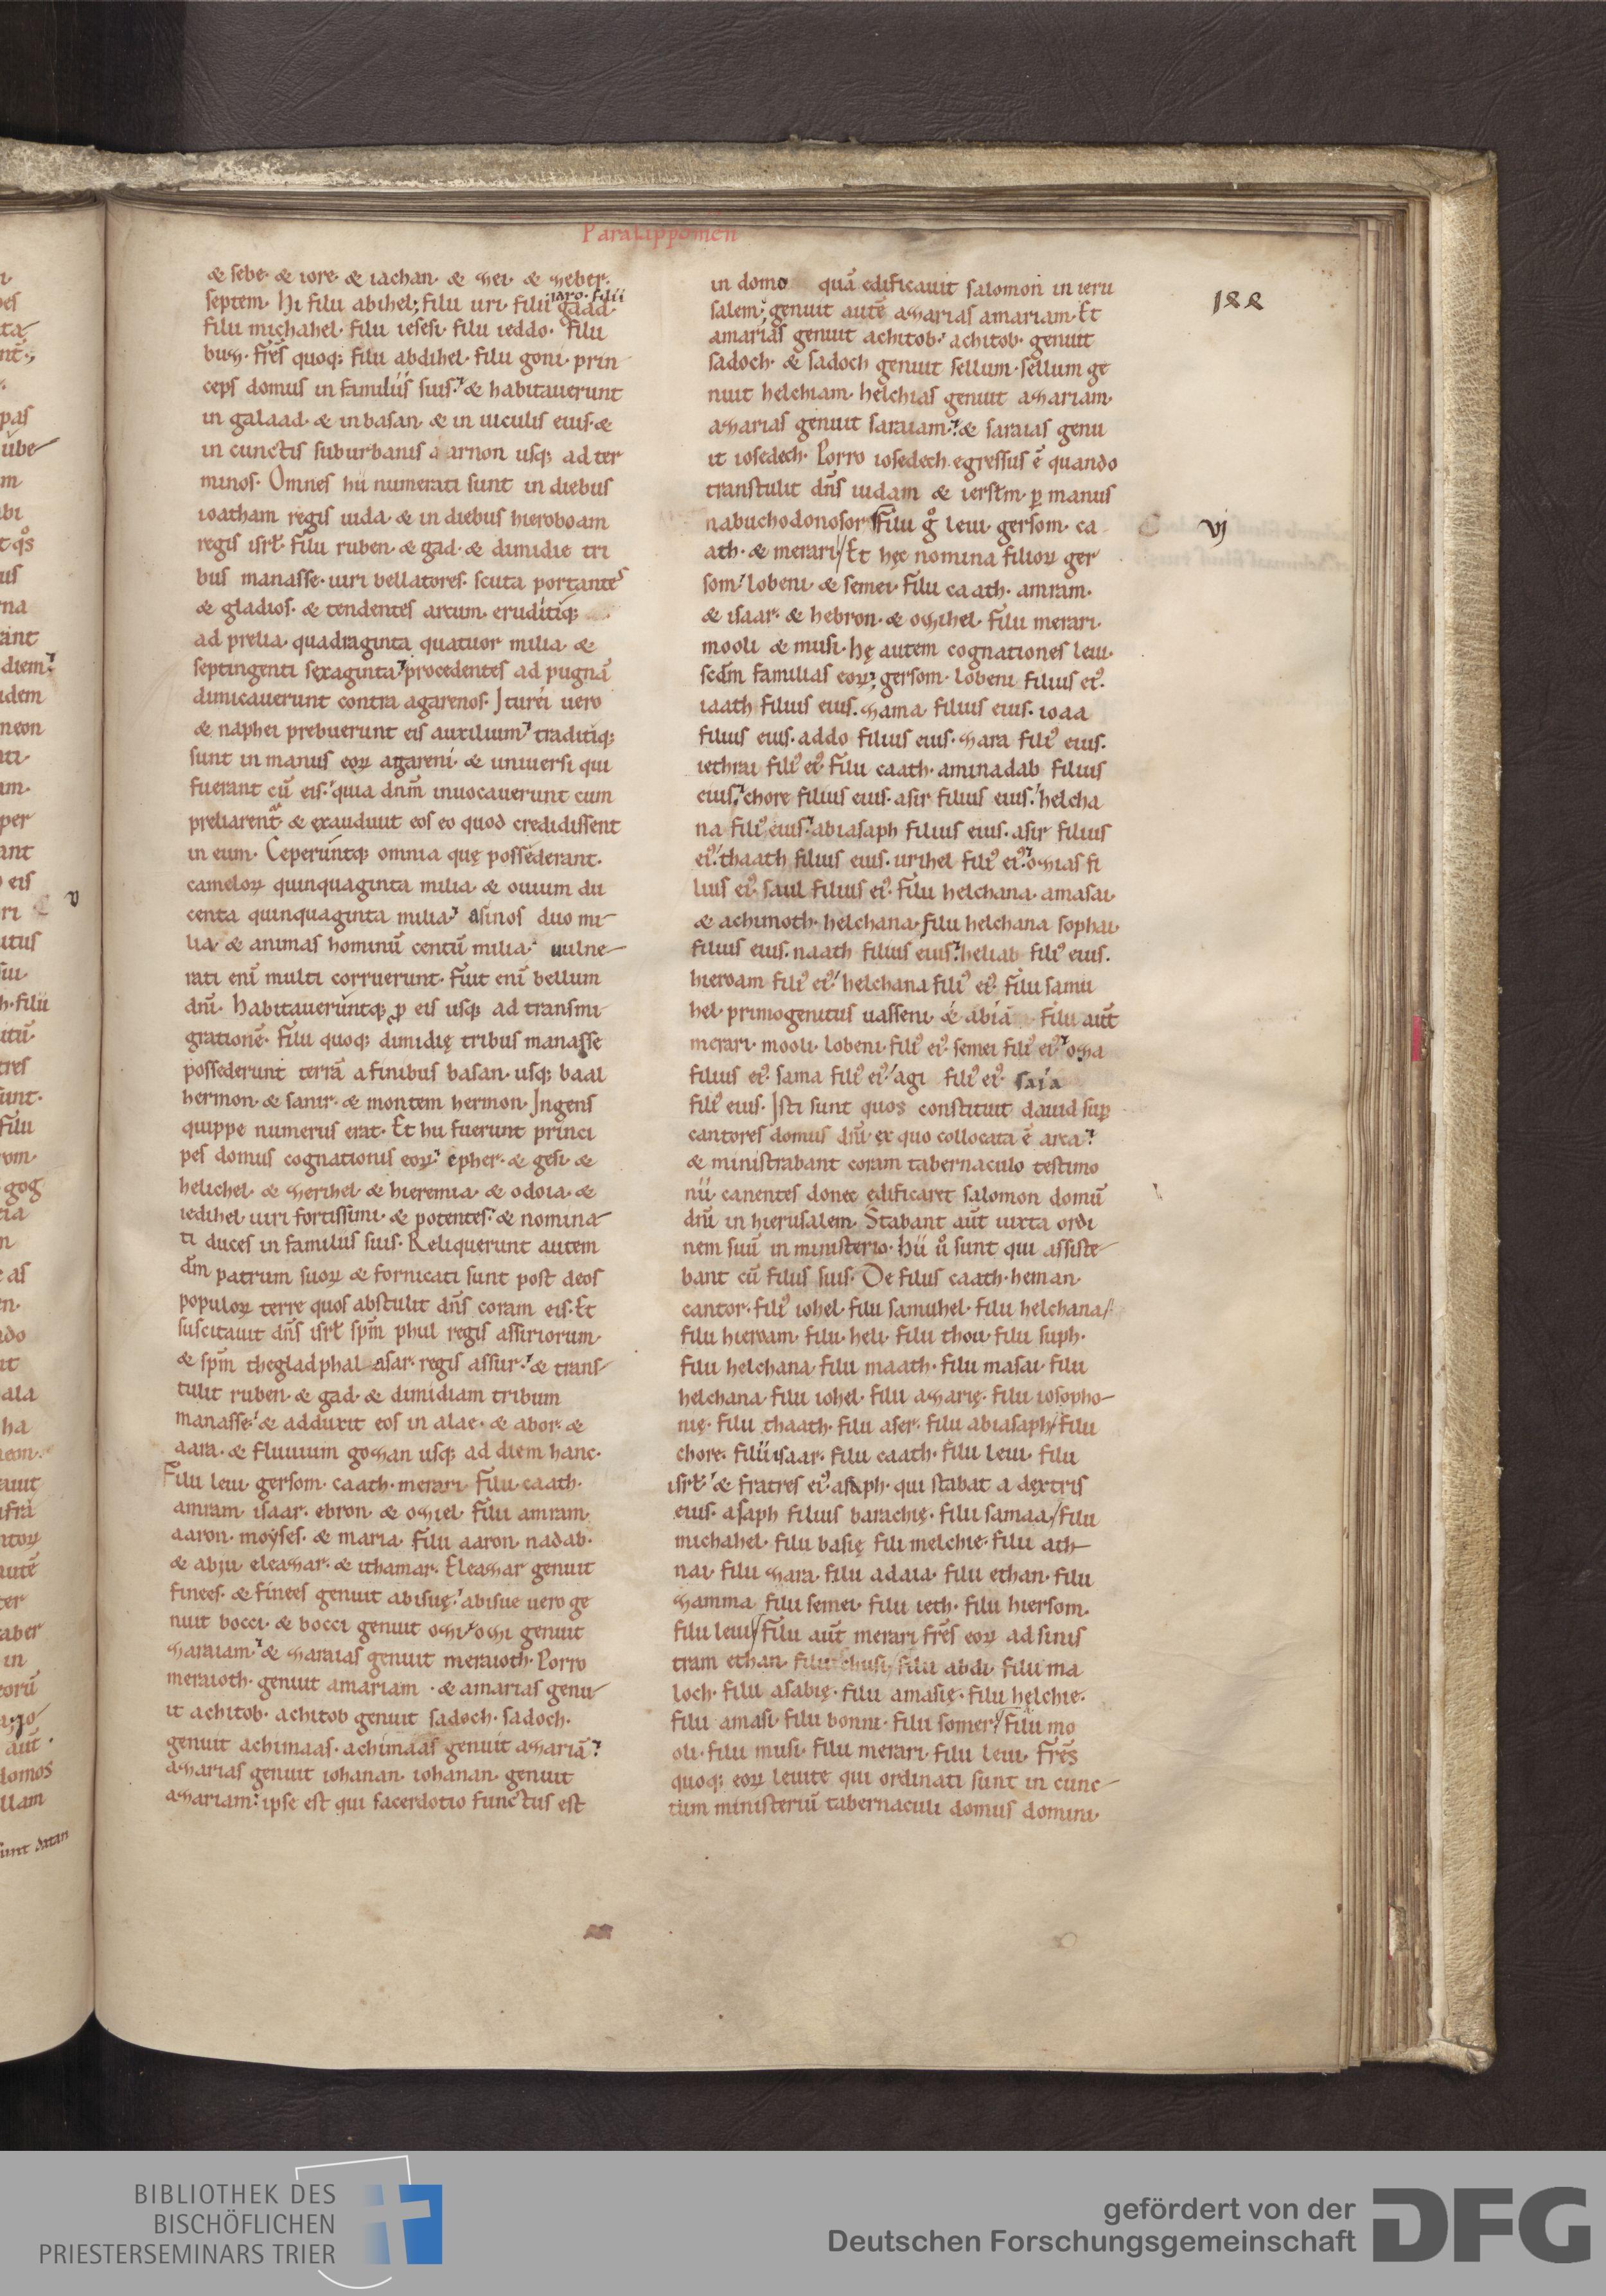 Paralippomen
& sebe· & iore· & iachan· & ʒei· & ʒeber·
septem· Hi filii abihel; filii uri· filii iaro· filii gaad·
filii michahel· filii iesesi· filii ieddo· filii
buʒ· fr̅es quoq; filii abdihel· filii goni· prin
ceps domus in familiis suis· & habitauerunt
in galaad· & in basan· & in uiculis eius· &
in cunctis suburbanis a arnon usq; ad ter
minos· Omnes hii numerati sunt in diebus
ioatham regis iuda· & in diebus hieroboam
regis isrl̅· filii ruben· & gad· & dimidie tri
bus manasse· uiri bellatores· scuta portantes
& gladios· & tendentes arcum· eruditiq;
ad prelia· quadraginta quatuor milia· &
septingenti sexaginta procedentes ad pugnā
dimicauerunt contra agarenos· Iturei uero
& naphei prebuerunt eis auxilium· traditiq;
sunt in manus eoꝝ agareni· & uniuersi qui
fuerant cū eis· quia dn̅m inuocauerunt cum
preliarent᷑ & exaudiuit eos eo quod credidissent
in eum· Ceperuntq; omnia quę possederant·
cameloꝝ quinquaginta milia· & ouium du
centa quinquaginta milia· asinos duo mi-
lia· & animas hominū centū milia· uulne-
rati enī multi corruerunt· fuit enī bellum
dn̅i· Habitaueruntq; ꝓ eis usq; ad transmi
grationē· filii quoq; dimidię tribus manasse
possederunt terrā a finibus basan· usq; baal
hermon· & sanir· & montem hermon· Ingens
quippe numerus erat· Et hii fuerunt princi
pes domus cognationis eoꝝ· epher· & gesi· &
helichel· & ʒerihel· & hieremia· & odoia· &
iedihel· uiri fortissimi· & potentes· & nomina-
ti duces in familiis suis· Reliquerunt autem
dm̅ patrum suoꝝ & fornicati sunt post deos
populoꝝ terre quos abstulit dn̅s coram eis· Et
suscitauit dn̅s isrl̅ spm̅ phul regis assiriorum·
& spm̅ thegladphal asar· regis assur· & trans-
tulit ruben· & gad· & dimidiam tribum
manasse· & adduxit eos in alae· & abor· &
aara· & fluuium goʒan usq; ad diem hanc·
Filii leui gersom· caath· merari· Filii caath·
amram· isaar· ebron· & oʒiel· filii amram·
aaron· moyses· & maria· Filii aaron· nadab·
& abiu· eleaʒar· & ithamar· Eleaʒar genuit
finees· & finees genuit abisuę· abisue uero ge
nuit bocci· & bocci genuit oʒi· oʒi genuit
ʒaraiam· & ʒaraias genuit meraioth· Porro
meraioth· genuit amariam· & amarias genu-
it achitob· achitob genuit sadoch· sadoch·
genuit achimaas· achimaas genuit aʒariā·
aʒarias genuit iohanan· iohanan· genuit
aʒariam· ipse est qui sacerdotio functus est
in domo quā edificauit salomon in ieru
salem; genuit autē aʒarias amariam· Et
amarias genuit achitob· achitob· genuit
sadoch· & sadoch genuit sellum· sellum ge
nuit helchiam· helchias genuit aʒariam·
aʒarias genuit saraiam· & saraias genu
it iosedech· Porro iosedech egressus ē quando
transtulit dn̅s iudam & ierslm̅· ꝑ manus
nabuchodonosor· Filii gͦ leui· gersom· ca
ath· & merari· Et hęc nomina filioꝝ ger
som· lobeni· & semei· Filii caath· amram·
& isaar· & hebron· & oʒihel· Filii merari·
mooli & musi· hę autem cognationes leui·
scd̅m familias eoꝝ; gersom· lobeni filius ei᷒·
iaath filius eius· ʒama filius eius· ioaa
filius eius· addo filius eius· ʒara fili᷒ eius·
iethrai fili᷒ ei᷒· Filii caath· aminadab filius
eius· chore filius eius· asir filius eius· helcha
na fili᷒ eius· abiasaph filius eius· asir filius
ei᷒· thaath filius eius· urihel fili᷒ ei᷒· oʒias fi
lius ei᷒· saul filius ei᷒· Filii helchana· amasai·
& achimoth· helchana· filii helchana sophai·
filius eius· naath filius eius· heliab fili᷒ eius·
hieroam fili᷒ ei᷒· helchana fili᷒ ei᷒· filii samu
hel· primogenitus uasseni· & abia· Filii aut̅
merari· mooli· lobeni· fili᷒ ei᷒· semei fili᷒ ei᷒· oʒa
filius ei᷒· sama fili᷒ ei᷒· agi fili᷒ ei᷒· saia
fili᷒ eius· Isti sunt quos constituit dauid suꝑ
cantores domus dn̅i· ex quo collocata ē arca·
& ministrabant coram tabernaculo testimo
nii· canentes donec edificaret salomon domū
dn̅i in hierusalem· Stabant aut̅ iuxta ordi
nem suū in ministerio· Hii u̾ sunt qui assiste-
bant cū filiis suis· De filiis caath· heman·
cantor· fili᷒ iohel· filii samuhel· filii helchana·
filii hieroam· filii heli· filii thou· filii suph·
filii helchana· filii maath· filii masai· filii
helchana· filii iohel· filii aʒarię· filii iosopho-
nię· filii thaath· filii aser· filii abiasaph· filii
chore· filii isaar· filii caath· filii leui· filii
isrl̅· & fratres ei᷒· asaph· qui stabat a dextris
eius· asaph filius barachię· filii samaa· filii
michahel· filii basię· filii melchie· filii ath-
nai· filii ʒara· filii adaia· filii ethan· filii
ʒamma· filii semei· filii ieth· filii hiersom·
filii leui· Filii aut̅ merari fr̅es eoꝝ ad sinis
tram ethan· filii chusi· filii abdi· filii ma
loch· filii asabię· filii amasię· filii helchie·
filii amasi· filii bonni· filii somer· filii mo
oli· filii musi· filii merari· filii leui· fr̅es
quoq; eoꝝ leuite qui ordinati sunt in cunc-
tum ministeriū tabernaculi domus domini·
188
vj
v
BIBLIOTHEK DES
BISCHÖFLICHEN
PRIESTERSEMINARS TRIER
gefördert von der
Deutschen Forschungsgemeinschaft
DFG